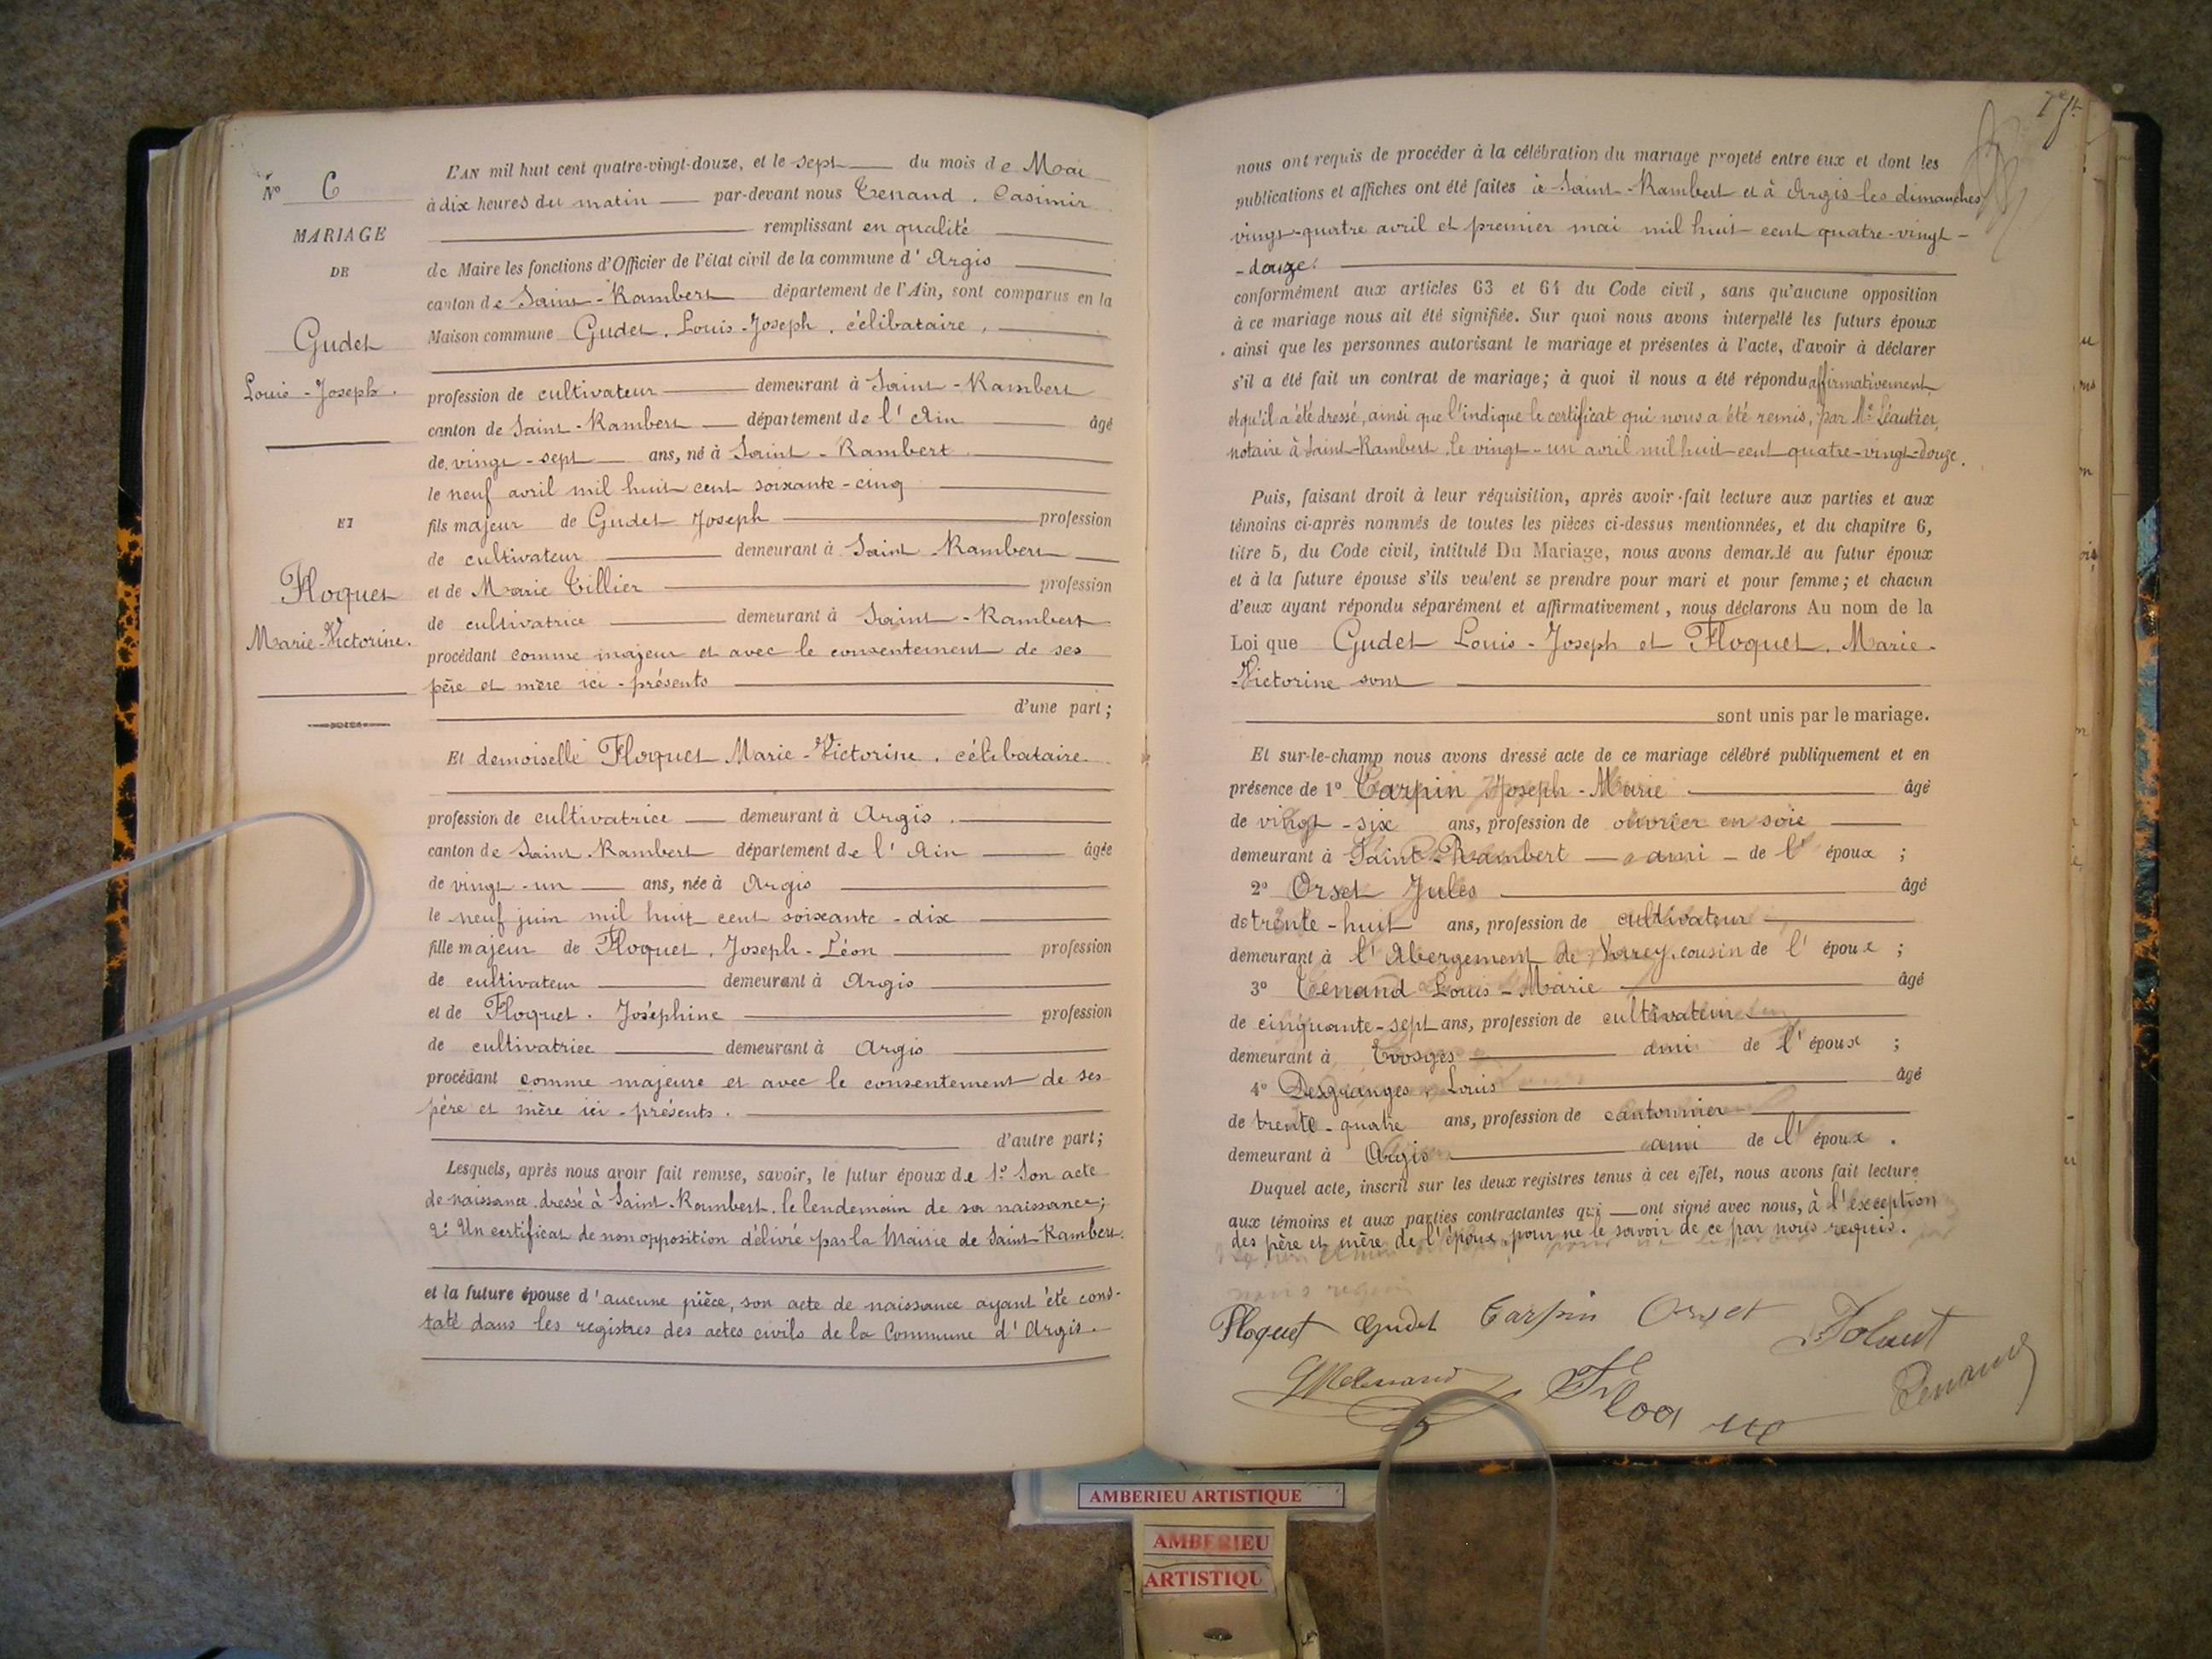 N° 6
MARIAGE
DE
Gudet
Louis-Joseph.
ET
Floquet
Marie-Victorine.
L'AN mil huit cent quatre-vingt-douze, et le sept du mois de Mai
à dix heures du matin par-devant nous Tenand. Casimir
remplissant en qualité
de Maire les fonctions d'Officier de l'état civil de la commune d'Argis
canton de Saint-Rambert département de l'Ain, sont comparus en la
Maison commune Gudet. Louis-Joseph. célibataire,
profession de cultivateur demeurant à Saint-Rambert
canton de Saint-Rambert département de l'Ain âgé
de vingt-sept ans, né à Saint-Rambert
le neuf avril mil huit cent soixante-cinq
fils majeur de Gudet Joseph profession
de cultivateur demeurant à Saint-Rambert
et de Marie Tillier profession
de cultivatrice demeurant à Saint-Rambert
procédant comme majeur et avec le consentement de ses
père et mère ici-présents
d'une part;
Et demoiselle Floquet Marie-Victorine. célibataire.
profession de cultivatrice demeurant à Argis.
canton de Saint-Rambert département de l'Ain âgée
de vingt-un ans, née à Argis
le neuf juin mil huit cent soixante-dix
fille majeur de Floquet. Joseph-Léon profession
de cultivateur demeurant à Argis
et de Floquet. Joséphine profession
de cultivatrice demeurant à Argis
procédant comme majeure et avec le consentement de ses
père et mère ici-présents.
d'autre part;
Lesquels, après nous avoir fait remise, savoir, le futur époux de 1° Son acte
de naissance dressé à Saint-Rambert, le lendemain de sa naissance;
2° Un certificat de non opposition délivré par la Mairie de Saint-Rambert.
et la future épouse d'aucune pièce, son acte de naissance ayant été cons-
taté dans les registres des actes civils de la Commune d'Argis.
nous ont requis de procéder à la célébration du mariage projeté entre eux et dont les
publications et affiches ont été faites à Saint-Rambert et à Argis les dimanches
vingt-quatre avril et premier mai mil huit cent quatre-vingt-
-douze.
conformément aux articles 63 et 64 du Code civil, sans qu'aucune opposition
à ce mariage nous ait été signifiée. Sur quoi nous avons interpellé les futurs époux
ainsi que les personnes autorisant le mariage et présentes à l'acte, d'avoir à déclarer
s'il a été fait un contrat de mariage; à quoi il nous a été répondu affirmativement
et qu'il a été dressé, ainsi que l'indique le certificat qui nous a été remis, par Me Léautier,
notaire à Saint-Rambert, le vingt-un avril mil huit cent quatre-vingt-douze.
Puis, faisant droit à leur réquisition, après avoir fait lecture aux parties et aux
témoins ci-après nommés de toutes les pièces ci-dessus mentionnées, et du chapitre 6,
titre 5, du Code civil, intitulé Du Mariage, nous avons demandé au futur époux
et à la future épouse s'ils veulent se prendre pour mari et pour femme; et chacun
d'eux ayant répondu séparément et affirmativement, nous déclarons Au nom de la
Loi que Gudet Louis-Joseph et Floquet. Marie-
-Victorine sont
sont unis par le mariage.
Et sur-le-champ nous avons dressé acte de ce mariage célébré publiquement et en
présence de 1° Tarpin Joseph-Marie âgé
de vingt-six ans, profession de ouvrier en soie
demeurant à Saint-Rambert ami de l'époux ;
2° Orset Jules âgé
de trente-huit ans, profession de cultivateur
demeurant à l'Abergement de Varey, cousin de l'époux ;
3° Tenand Louis-Marie âgé
de cinquante-sept ans, profession de cultivateur
demeurant à ami de l'époux ;
4° Desgranges, Louis âgé
de trente-quatre ans, profession de cantonnier
demeurant à Argis ami de l'époux.
Duquel acte, inscrit sur les deux registres tenus à cet effet, nous avons fait lecture
aux témoins et aux parties contractantes qui ont signé avec nous, à l'exception
des père et mère de l'époux, pour ne le savoir de ce par nous requis.
Floquet Gudet Tarpin Orset
Tenand
AMBERIEU ARTISTIQUE
AMBERIEU
ARTISTIQU